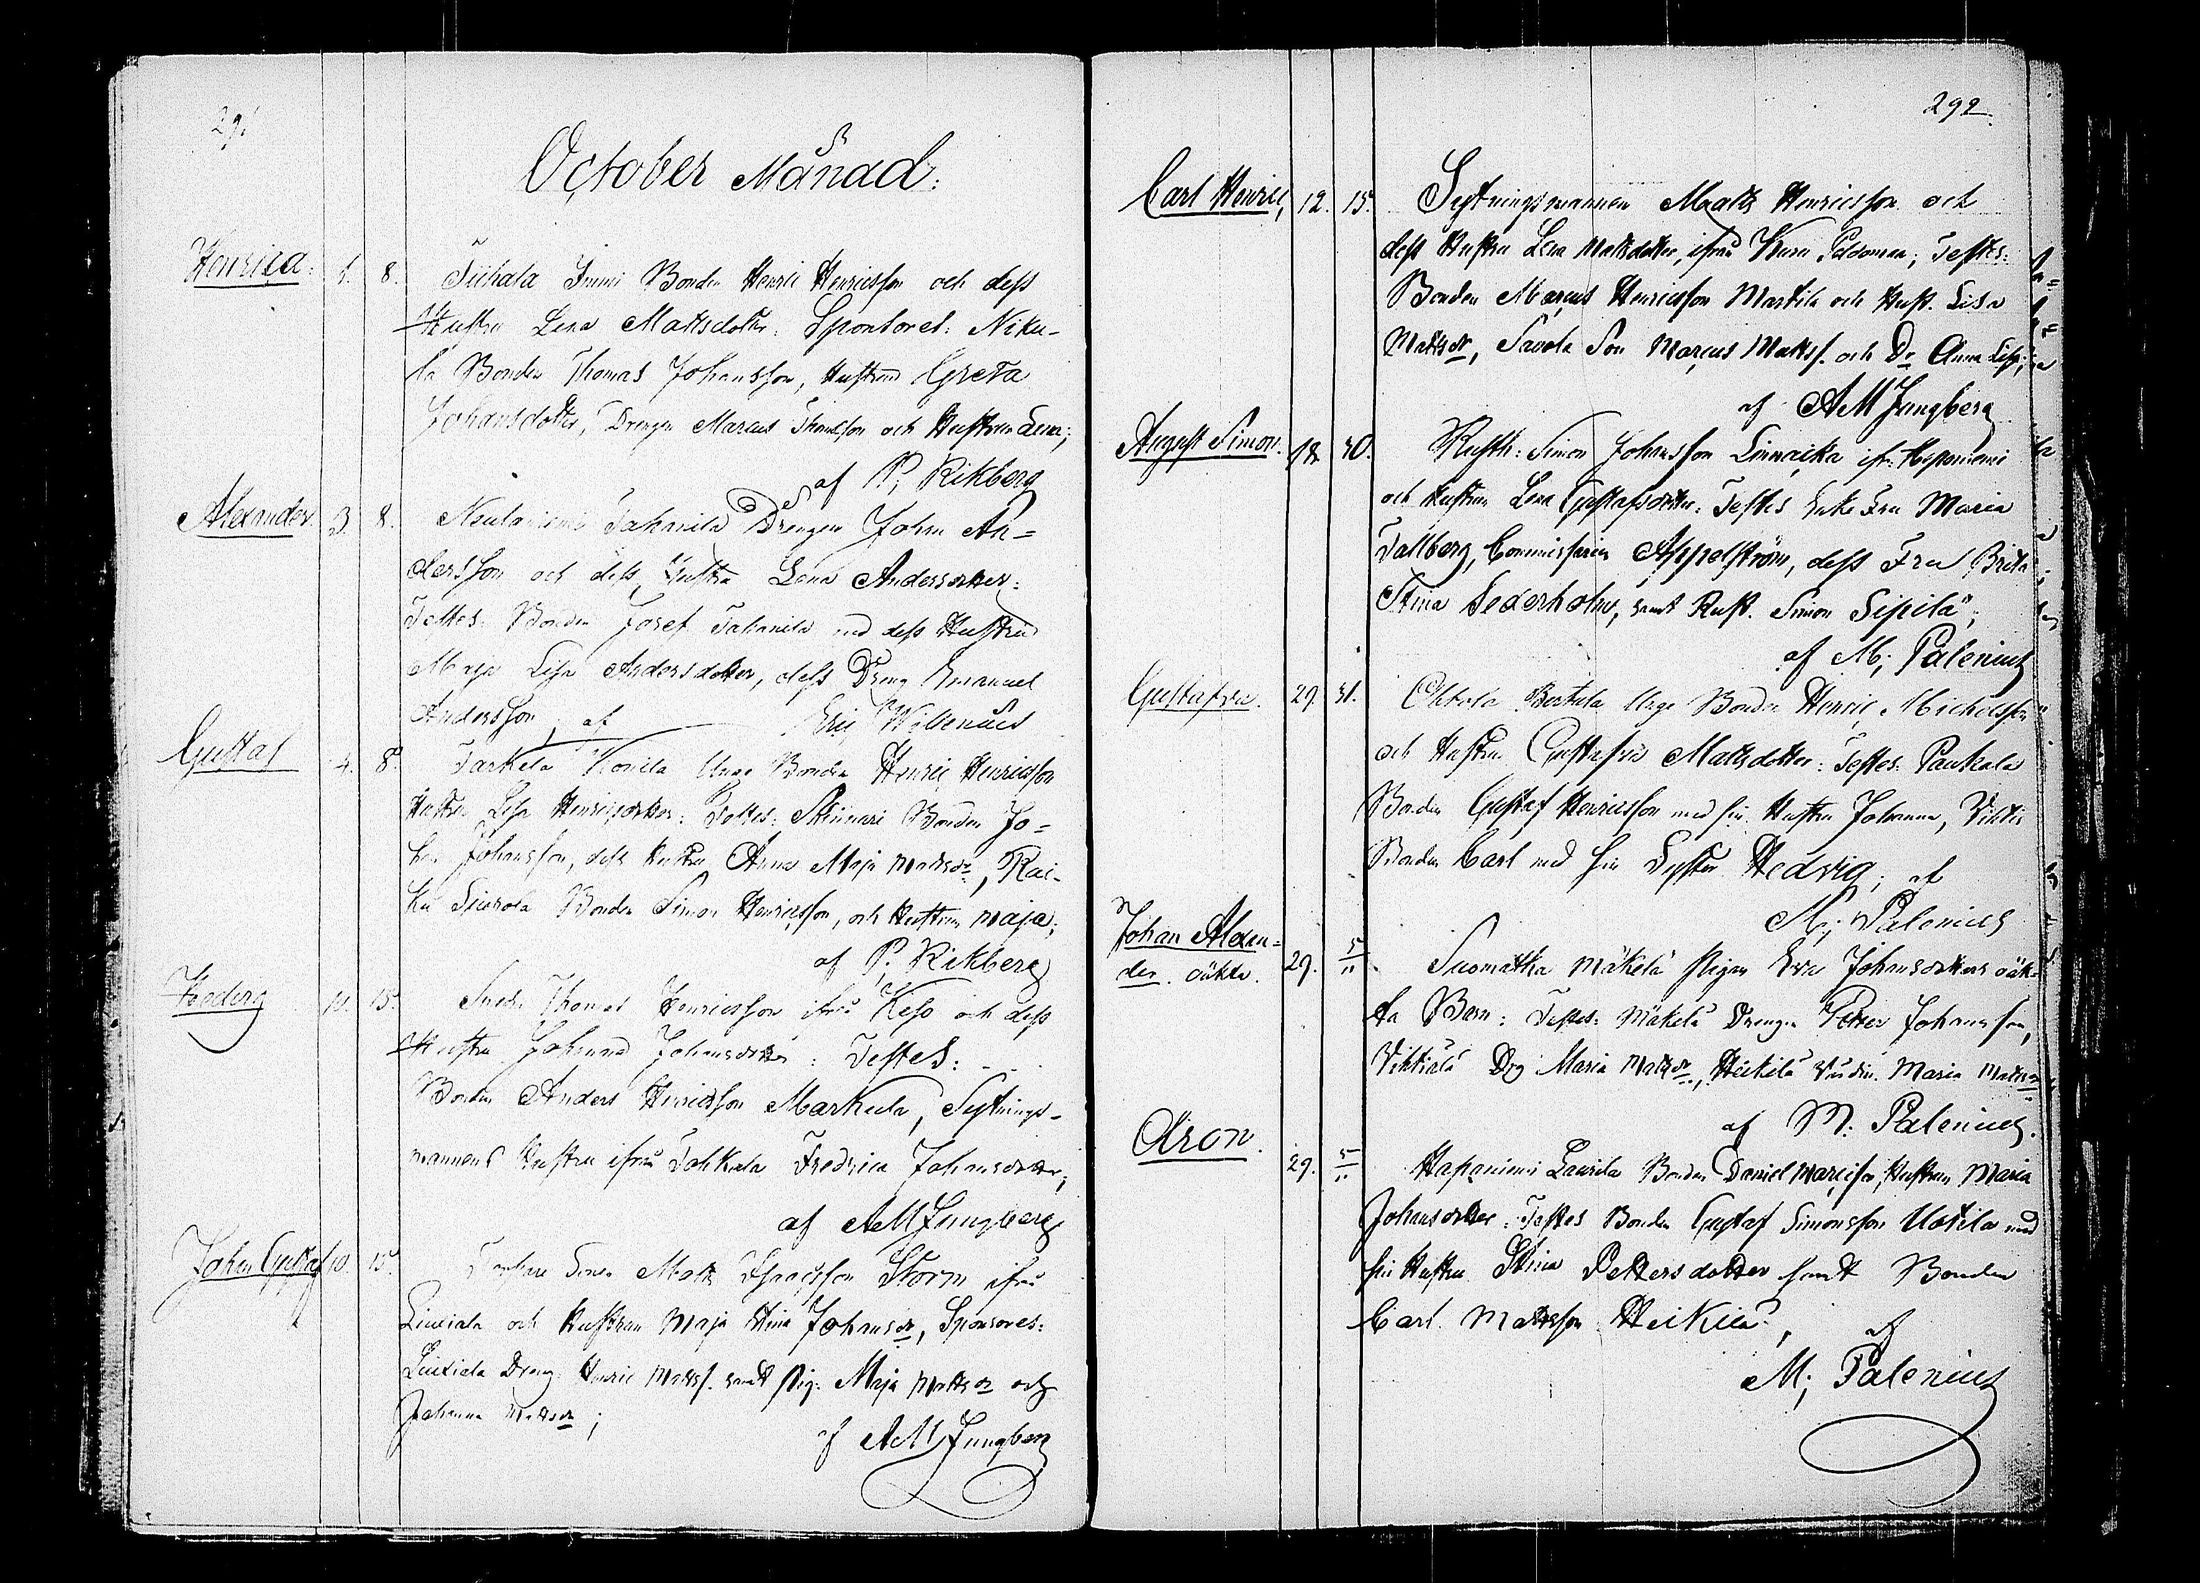 291
October Månad:
Henrica. 1. 8. Tuhala Immi Bonden Henric Henricsson och dess
Hustru Lena Mattsdotter: Sponsores: Niku-
la Bonden Thomas Johansson, Hustrun Greta
Johansdotter, Drengen Marcus Thomasson och Hustrun Lena;
af P; Rikberg
Alexander. 3. 8. Tahanila Drengen Johan An=
dersson och dess Hustru Lena Andersdotter:
Testes: Bonden Josef Tahanila med dess Hustru
Maja Lisa Andersdotter, dess Dreng Emanuel
Andersson; af Eric Willenius
Gustaf 4. 8. Tarkela Unge Bonden Henric Henricsson
Hustru Lisa Henricsdotter: Testes: Bonden Jo=
han Johansson, dess Hustru Anna Maja Mattsdr, Rai-
ku Bonden Simon Henricsson, och Hustrun Maja;
af P. Rikberg
Hedvig 11. 15. Thomas Henricsson ifrån Keso och dess
Hustru Johanna Johansdotter: Testes:
Bonden Anders Henricsson Markula, Sytnings-
mannens Hustru ifrån Tahkala Fredrica Johansdotter;
af AM Jungberg
Johan Gustaf 10. 15. Torpare Sonen Matts Isaacsson Storm ifrån
Liuxiala och Hustrun Maja Stina Johansdr, Sponsores:
Liuxiala Dreng Henric Mattss. samt Pig: Maja Mattsdr och
Johanna Mattsdr;
af AM Jungberg
292.
Carl Henric, 12. 15. Sytningsmannen Matts Henricsson och
dess Hustru Lena Mattsdotter, ifrån; Testes:
Bonden Marcus Henricsson Martila och Hust. Lisa
Mattsdr, Savola Son Marcus Mattss. och Dr Anna Lisa;
af AM Jungberg
August Simon. 18. 30. Rusth: Simon Johansson Linnaika ifr:
och Hustrun Lena Gustafsdotter: Testes Enke Fru Maria
Tallberg, Commissarien Appelström, dess Fru Brita
Stina Sederholm, samt Rust. Simon Sipilä;
af M; Palenius
Gustafva. 29. 31. Ohtola Bertula Unge Bonden Henric Michelsson
och Hustrun Gustafva Mattsdotter: Testes: Paukala
Bonden Gustaf Henricsson med sin Hustru Johanna,
Bonden Carl med sin Syster Hedvig; af
M; Palenius
Johan Alexan=
der. oäkta. 29. 5/11 Suomatka Mäkelä Pigan Eva Johansdotters oäk-
ta Barn: Testes: Mäkelä Drengen Petter Johansson,
Vihtiälä Drg Maria Mattsdr, Heikilä Maria Mattsdr
af M: Palenius.
Aron. 29. 5/11 Hapaniemi Laurila Bonden Daniel Marcisson, Hustrun Maria
Johansdotter: Testes Bonden Gustaf Simonsson Uotila med
sin Hustru Stina Pettersdotter samt Bonden
Carl Mattsson Heikilä, af
M; Palenius